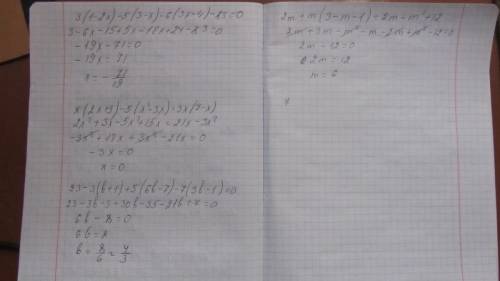 3(1-2x)-5(3-x)-6(3x-4)-83=0
3-6x-15+5x-18x+24-83=0
-19x-71=0
-19x=71
x=-71/19
x(2x+3)-5(x²-3x)=3x(7-x)
2x²+3x-5x²+15x=21x-3x²
-3x²+18x+3x²-21x=0
-3x=0
x=0
23-3(b+1)+5(6b-7)-7(3b-1)=0
23-3b-3+30b-35-21b+7=0
6b-8=0
6b=8
b=8/6=4/3
2m+m(3-m-1)=2m-m²+12
2m+3m-m²-m-2m+m²-12=0
2m-12=0
2m=12
m=6